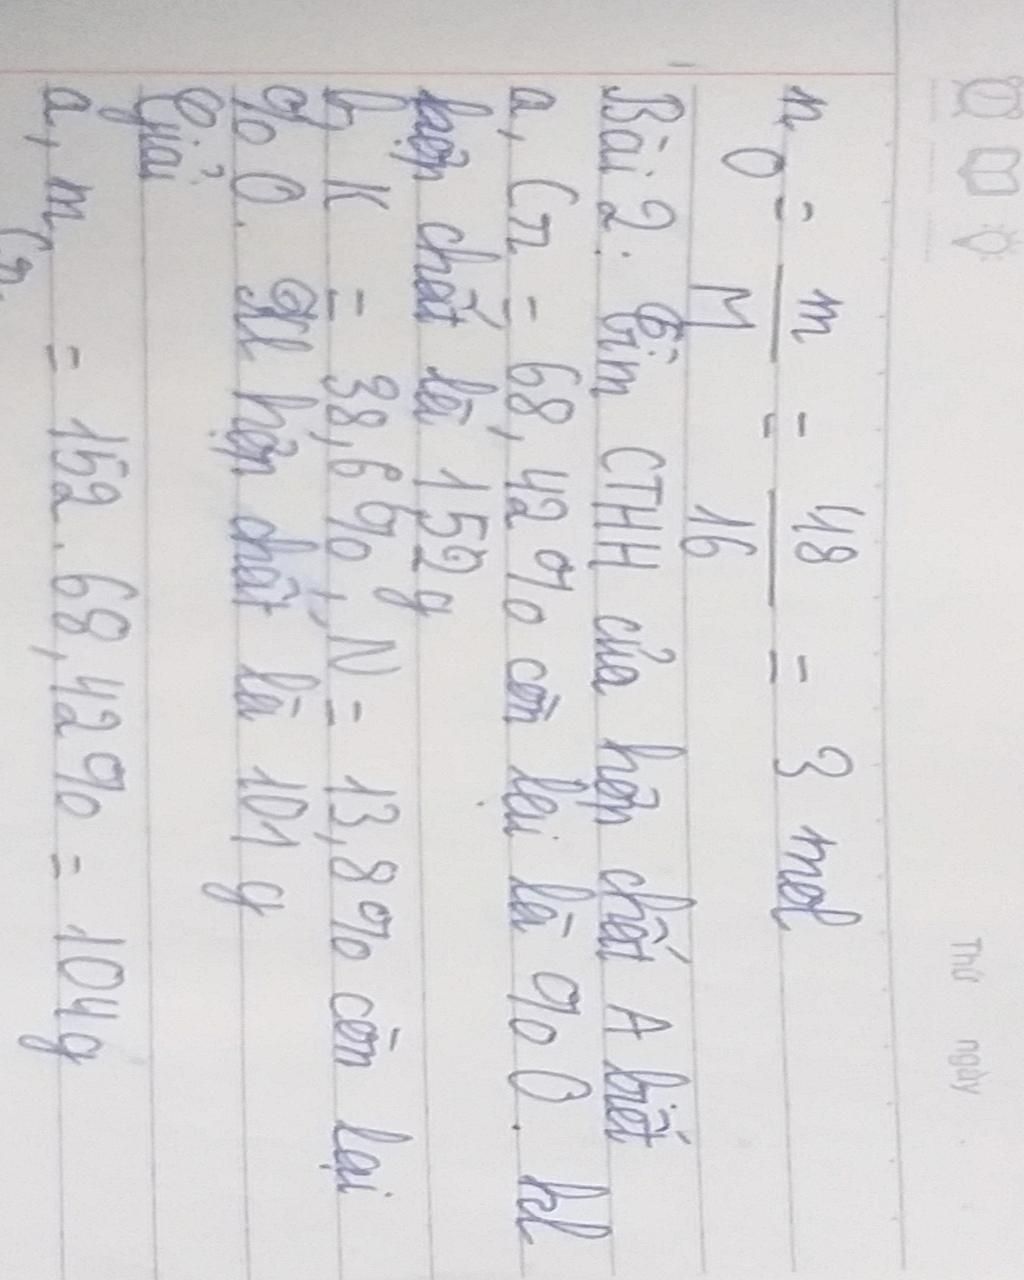 Thứ ngày
n_O = m/M = 48/16 = 3 mol
Bài 2: Tìm CTHH của hợp chất A biết
a, Cr = 68,42% còn lại là % O. kl
hợp chất là 152g
b, K = 38,6%, N = 13,8% còn lại
% O. gll hợp chất là 101g
Giải
a, m_Cr = 152.68,42% = 104g